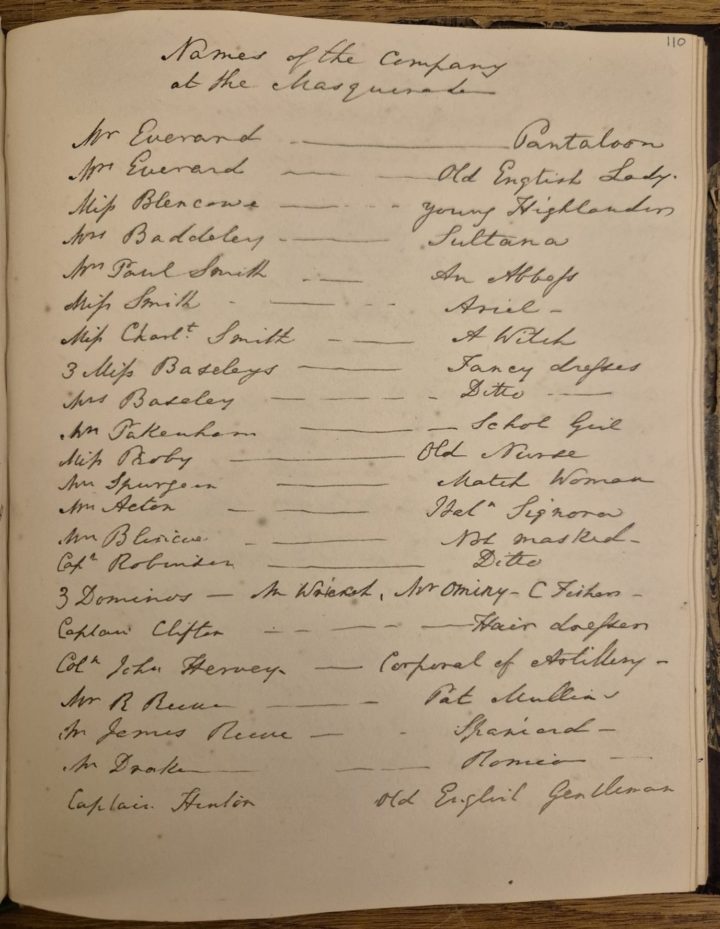 110
Names of the Company
at the Masquerade
Mr Everard — Pantaloon
Mrs Everard — Old English Lady.
Miſs Blencowe — young Highlander
Mrs Baddeley — Sultana
Mrs Paul Smith — An Abbeſs
Miſs Smith — Ariel –
Miſs Charlt. Smith — A Witch
3 Miſs Baseleys — Fancy dreſses
Mrs Baseley — Ditto —
Mrs Pakenham — Schol Girl
Miſs Proby — Old Nurse
Mrs Spurgeon — Match Woman
Mrs Acton — Italn Signora
Mrs — Not masked –
Capt Robinson — Ditto
3 Dominos — Mr, Mr – C Fisher –
Captain Clifton — Hair dreſser
Coln John Hervey — Corporal of Artillery –
Mr R Reeve — Pat Mullins
Mr James Reeve — Spaniard –
Mr Drake — Romeo —
Captain Hinton Old English Gentleman